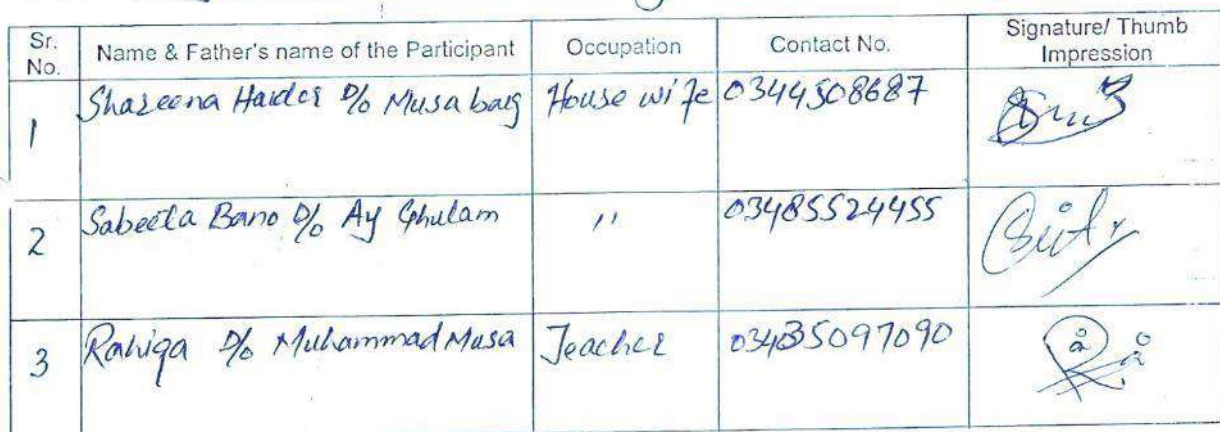 Sr. No. Name & Father's name of the Participant Occupation Contact No. Signature/ Thumb Impression
1 Shazeena Haider D/o Musa baig House wife 0344508687
2 Sabeela Bano D/o Ay Ghulam " 03485524455
3 Rahiqa D/o Muhammad Musa Teacher 03435097090